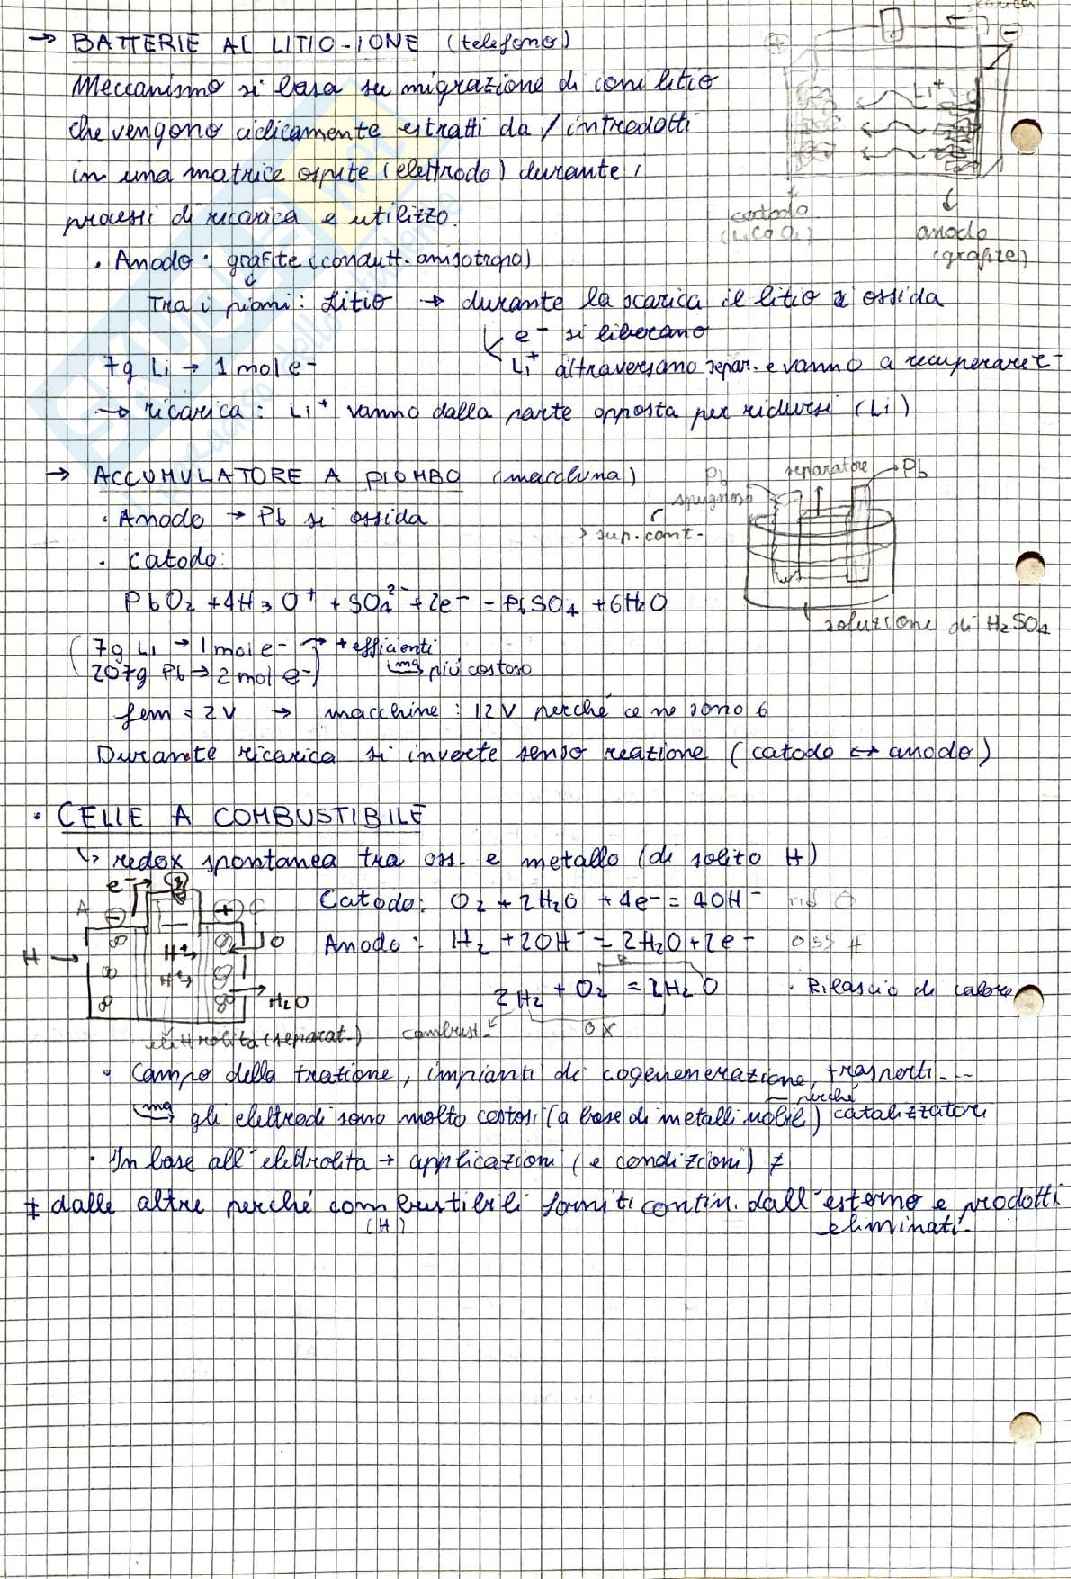 → BATTERIE AL LITIO-IONE (telefono)
Meccanismo si basa su migrazione di ioni litio
che vengono ciclicamente estratti da / introdotti
in una matrice ospite (elettrodo) durante i
processi di ricarica e utilizzo.
+
-
Li+
catodo
(LiCoO2)
anodo
(grafite)
• Anodo: grafite (condutt. anisotropo)
Tra i piani: Litio → durante la scarica il litio si ossida
e- si liberano
7g Li → 1 mol e-
Li+ attraversano separ. e vanno a recuperare e-
→ ricarica: Li+ vanno dalla parte opposta per ridursi (Li)
→ ACCUMULATORE A PIOMBO (macchina)
Pb spugnoso
separatore
Pb
> sup. cont.
• Anodo → Pb si ossida
• Catodo:
PbO2 + 4H3O+ + SO4 2- + 2e- = PbSO4 + 6H2O
soluzione di H2SO4
(7g Li → 1 mol e- → + efficienti
207g Pb → 2 mol e-) ma più costoso
fem = 2V → macchine: 12V perché ce ne sono 6
Durante ricarica si inverte senso reazione (catodo ↔ anodo)
• CELLE A COMBUSTIBILE
↳ redox spontanea tra oss. e metallo (di solito H)
e-
A
-
+
C
H →
H+
H+
O
H2O
elettrolita (separat.)
Catodo: O2 + 2H2O + 4e- = 4OH- rid O
Anodo: H2 + 2OH- = 2H2O + 2e- oss H
R
2H2 + O2 = 2H2O
combust.
OX
• Rilascio di calore
• Campo della trazione, impianti di cogenenerazione, trasporti...
ma gli elettrodi sono molto costosi (a base di metalli nobili) perché catalizzatori
• In base all'elettrolita → applicazioni (e condizioni) ≠
≠ dalle altre perché combustibili forniti contin. dall'esterno e prodotti
(H)
eliminati.